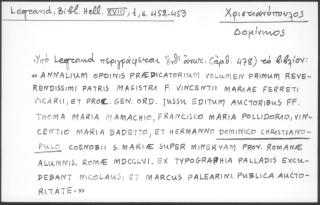 Legrand, Bibl. Hell. XVIII, 1, σ. 452-453
Χριστιανόπουλος
Δομίνικος
Ὑπὸ Legrand περιγράφεται ἐδῶ (ἀρ. 478) τὸ βιβλίον:
« ANNALIUM OPDINIS PRÆDICATORIUM VOLUMEN PRIMUM REVE-
RENDISSIMI PATRIS MAGISTRA F. VINCENTII MARIAE FERRETI
VICARII, ET PROC. GEN. ORD. JUSSU EDITUM AUCTORIBUS FF.
THOMA MARIA MAMACHIO, FRANCISCO MARIA POLLIDORIO, VIN-
CENTIO MARIA BADETTO, ET HERMANNO DOMINICO CHRISTIANO-
PULO COENOBII S. MARIÆ SUPER MINERVAM PROV. ROMANAE
ALUMNIS. ROMÆ MDCCLVI. EX TYPOGRAPHIA PALLADIS EXCU-
DEBANT NICOLAUS, ET MARCUS PALEARINI. PUBLICA AUCTO-
RITATE. »